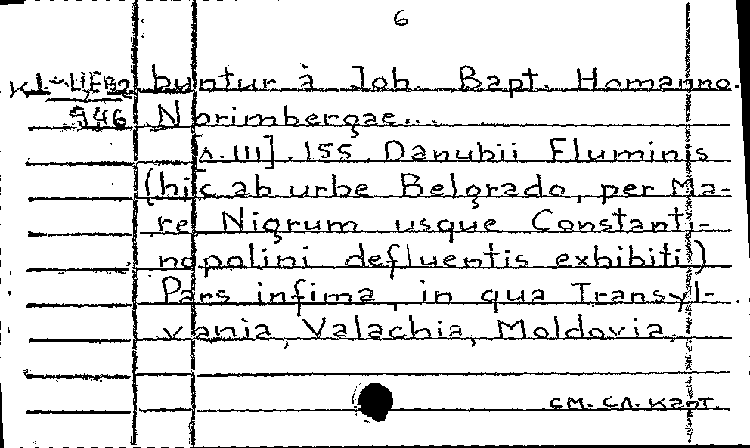 6
KI-ЦЕВ2 buntur à Joh. Bapt. Homanno.
946 Norimbergae...
[Л.III]. 155. Danubii Fluminis
(hic ab urbe Belgrado, per Ma-
re Nigrum usque Constanti-
nopolini defluentis exhibiti)
Pars infima, in qua Transyl-
vania, Valachia, Moldovia,
см. сл. карт.